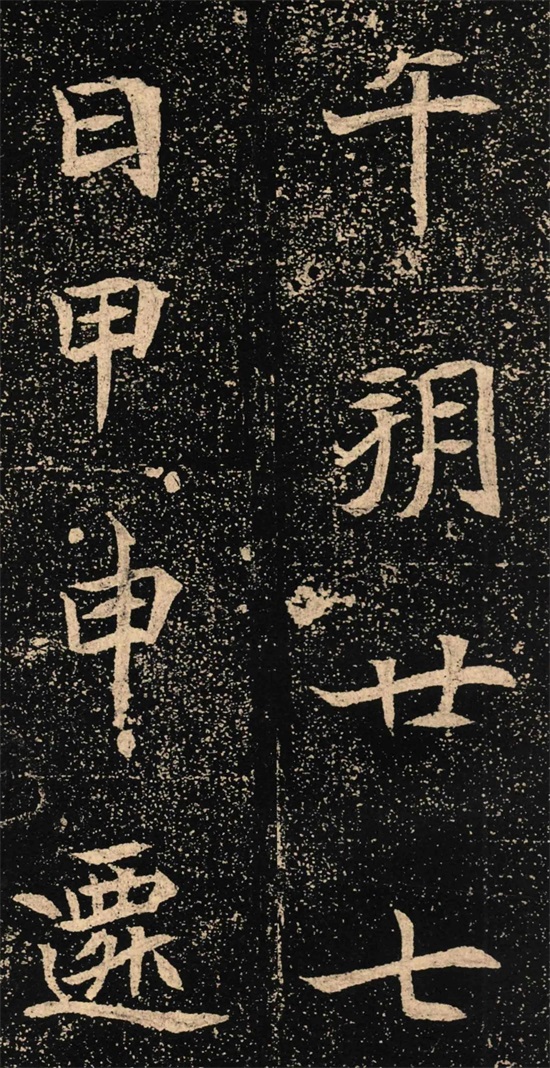 午朔廿七
日甲申遷